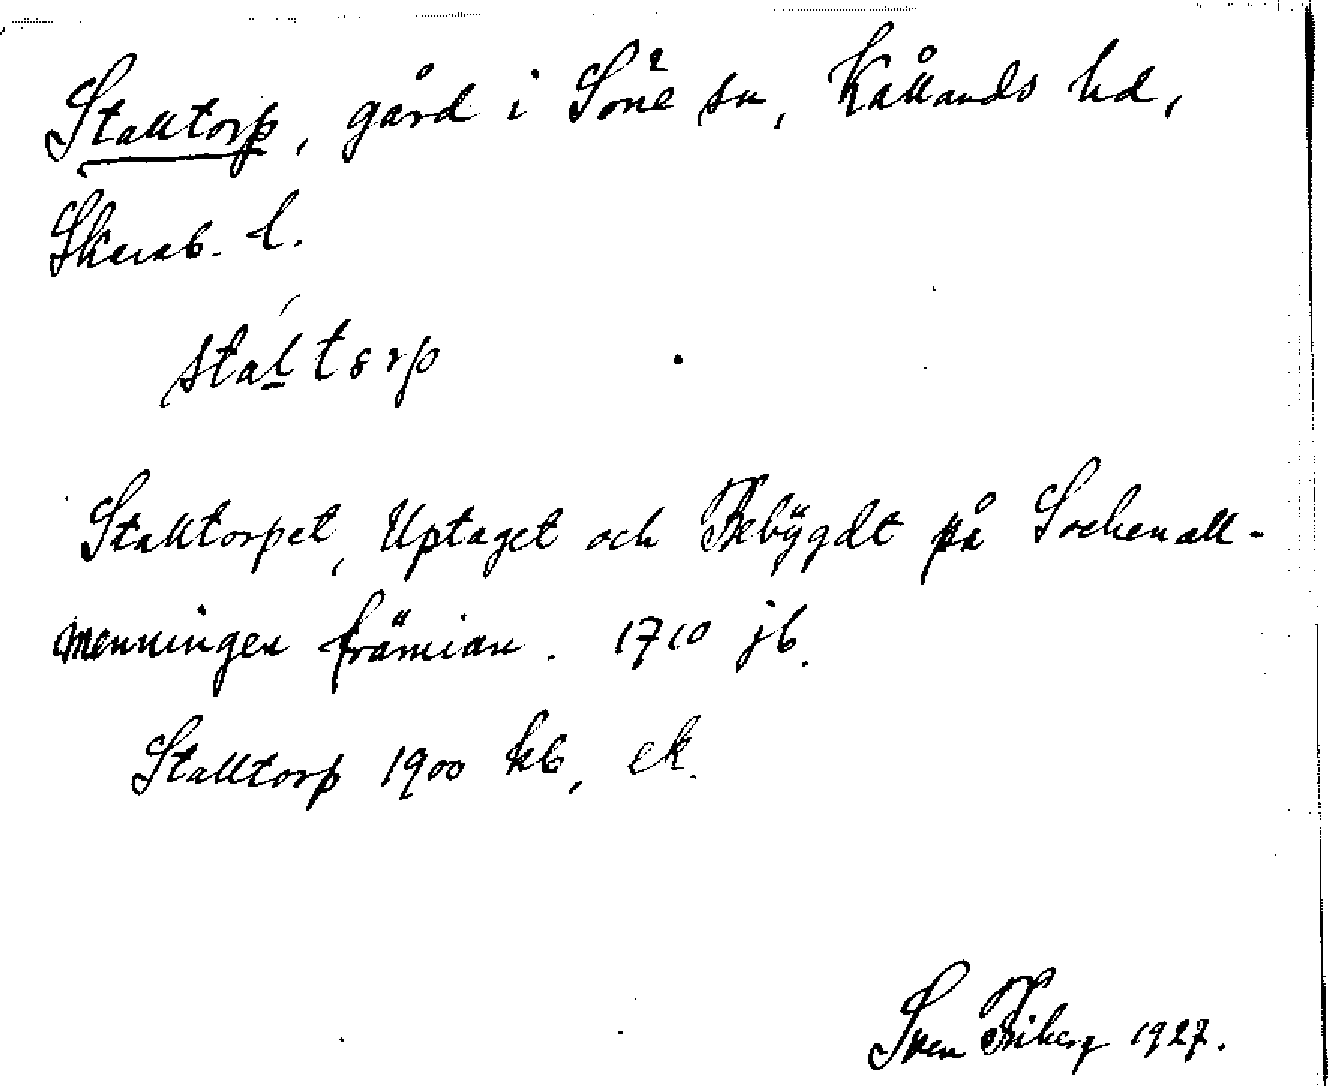 Stalltorp, gård i Söne sn, Kållands hd,
Skarab. l.
staltorp
Stalltorpet, Uptaget och Bebÿgdt på Sochenall-
menningen främian. 1710 jb.
Stalltorp 1900 kb, ek.
Sven Friberg 1927.